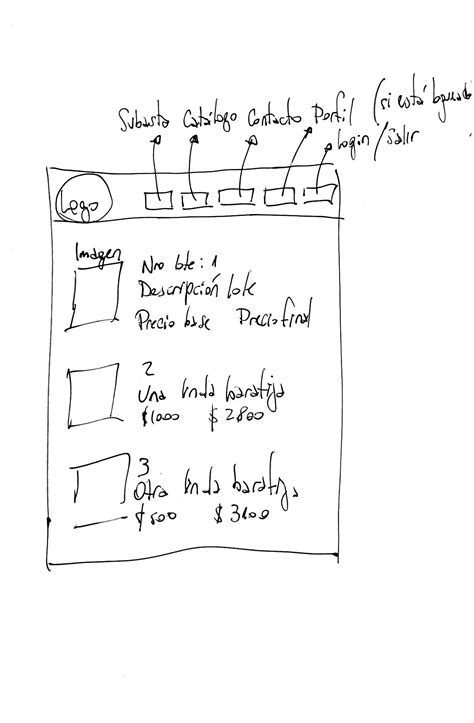 Subasta Catálogo Contacto Perfil (si está logueado
Login/Salir
Logo
Imagen
Nro lote: 1
Descripción lote
Precio base Precio final
2
Una linda baratija
$1000 $2800
3
Otra linda baratija
$500 $3100